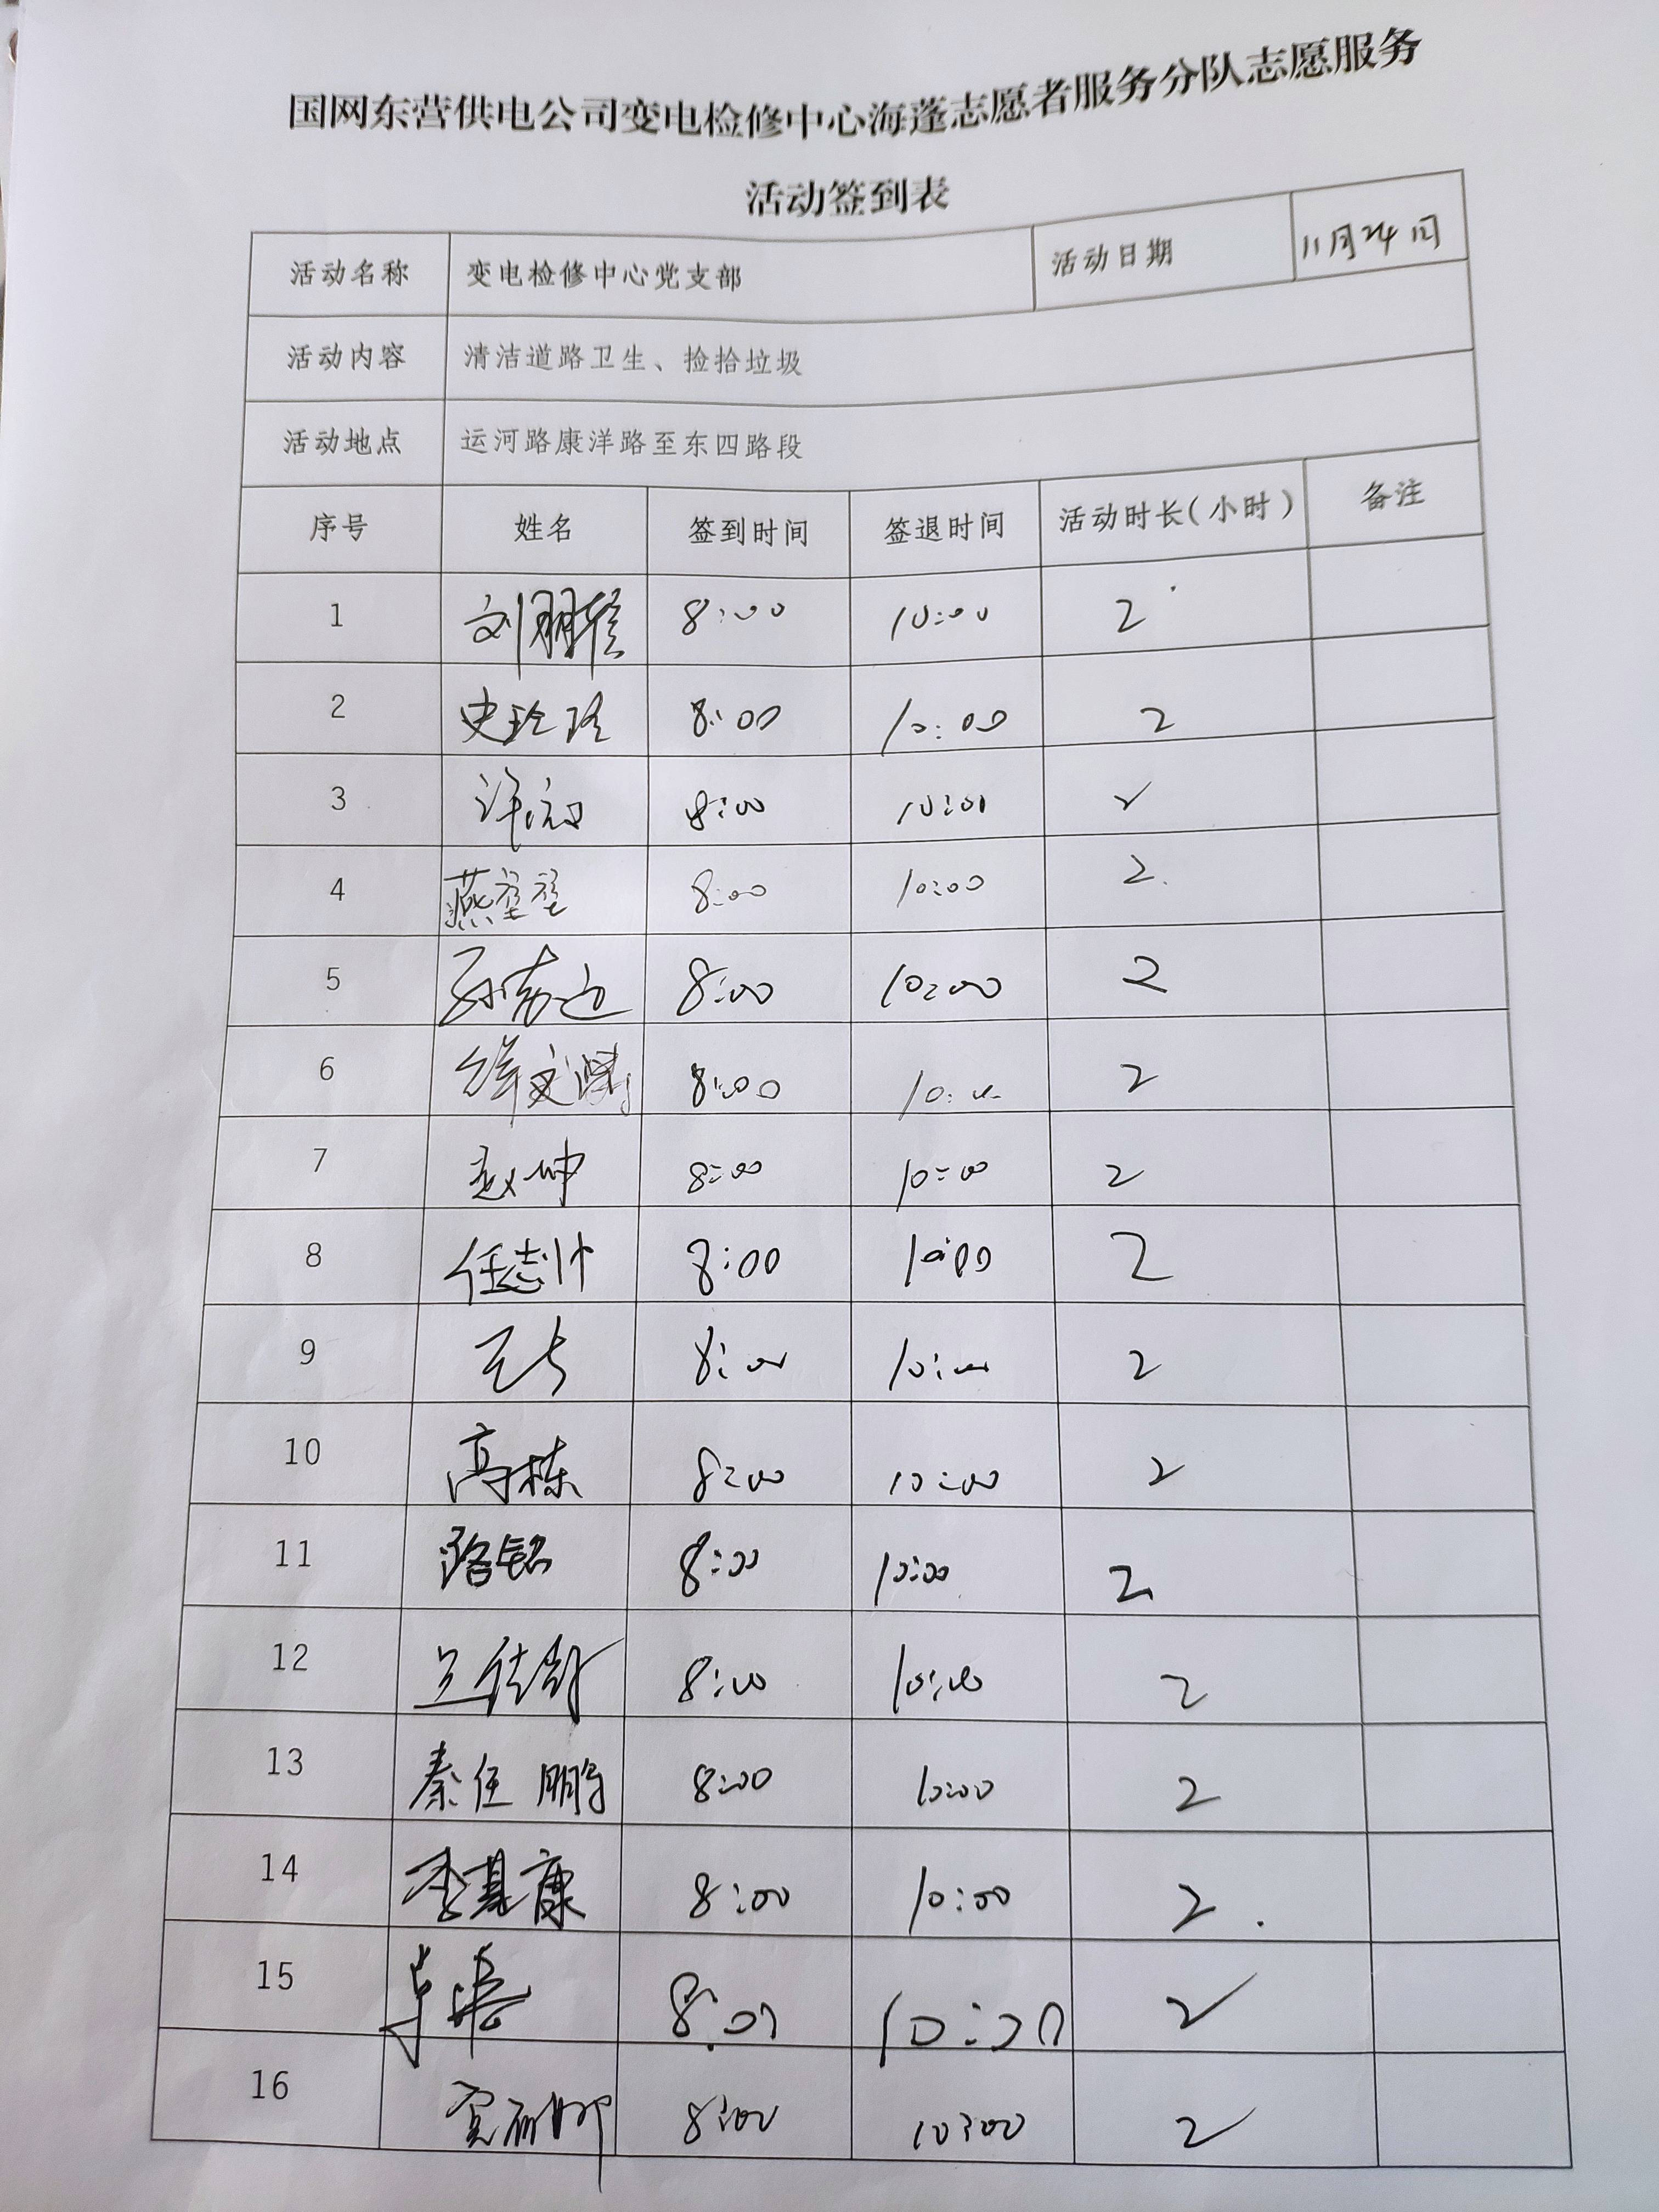 国网东营供电公司变电检修中心海蓬志愿者服务分队志愿服务
活动签到表
活动名称 变电检修中心党支部 活动日期 11月24日
活动内容 清洁道路卫生、捡拾垃圾
活动地点 运河路康洋路至东四路段
序号 姓名 签到时间 签退时间 活动时长(小时) 备注
1 8:00 10:00 2
2 史玲玲 8:00 10:00 2
3 8:00 10:00 2
4 燕莹莹 8:00 10:00 2
5 8:00 10:00 2
6 8:00 10:00 2
7 赵坤 8:00 10:00 2
8 任志帅 8:00 10:00 2
9 8:00 10:00 2
10 高栋 8:00 10:00 2
11 路铭 8:00 10:00 2
12 8:00 10:00 2
13 秦任鹏 8:00 10:00 2
14 李其康 8:00 10:00 2
15 8:00 10:00 2
16 8:00 10:00 2